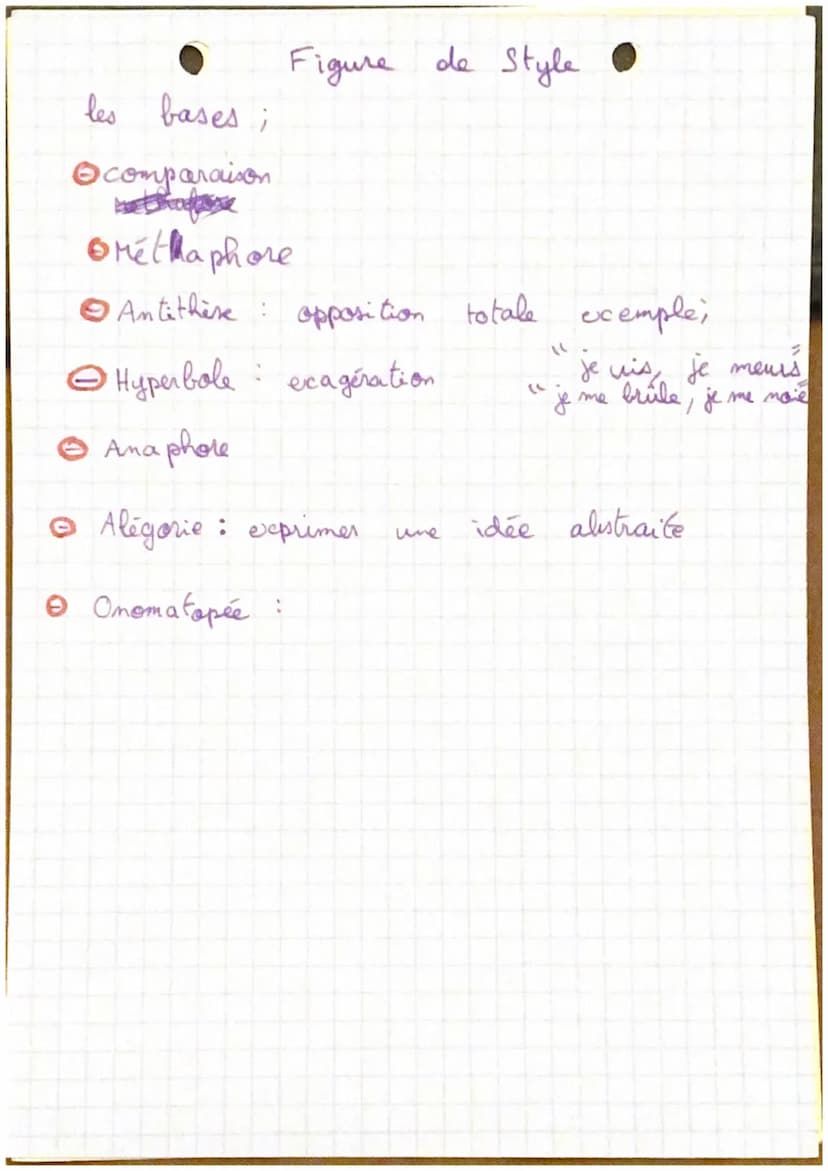 Figure de Style
les bases ;
comparaison
Méthaphore
Antithèse : opposition totale exemple;
" je vis, je meurs"
Hyperbole : exagération
" je me brûle, je me noie
Anaphore
Alégorie : exprimer une idée abstraite
Onomatopée :